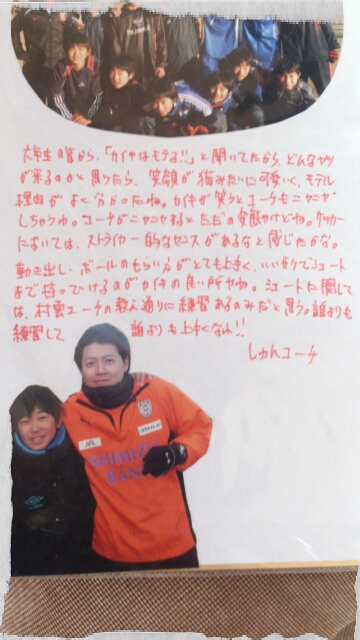 六年生の皆から、「カイキはモテる!!」と聞いてたから、どんなやつ
が来るのかと思ったら、笑顔が猫みたいに可愛いく、モテル
理由がよく分かったわ。カイキが笑うとコーチもニヤニヤ
しちゃうわ。コーチがニヤニヤするとただの変態だけどね。サッカー
においては、ストライカー的なセンスがあるなと感じたかな。
動き出し、ボールのもらい方がとても上手く、いい形でシュート
まで持っていけるのがカイキの良い所やわ。シュートに関して
は、村雲コーチの教え通りに練習あるのみだと思う。誰よりも
練習して、誰よりも上手くなれ!!
しかんコーチ
SHIMIZU
BANK